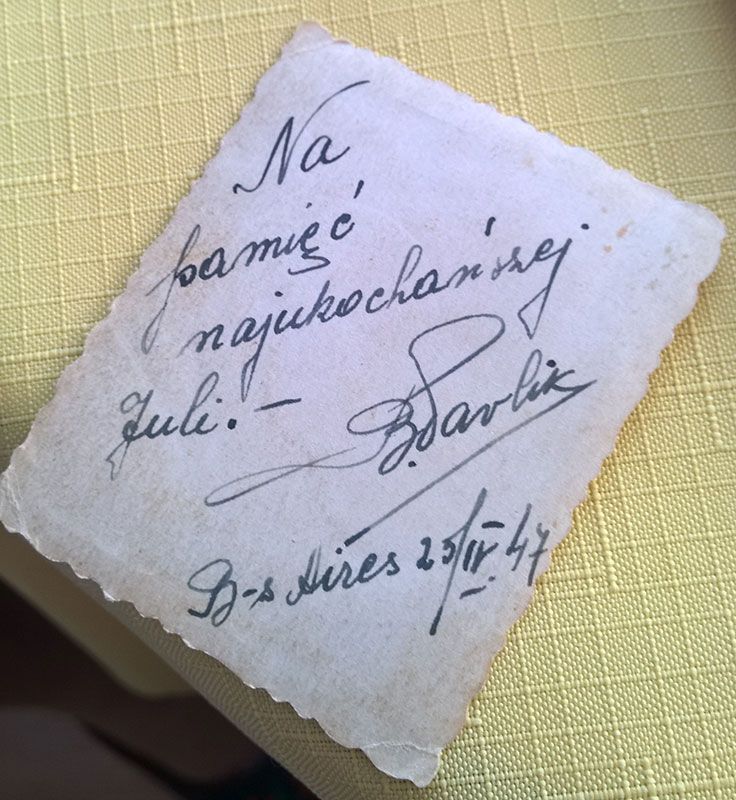 Na
pamięć
najukochańszej
Juli. –
B. Pavlik
B-s Aires 25/IV. 47